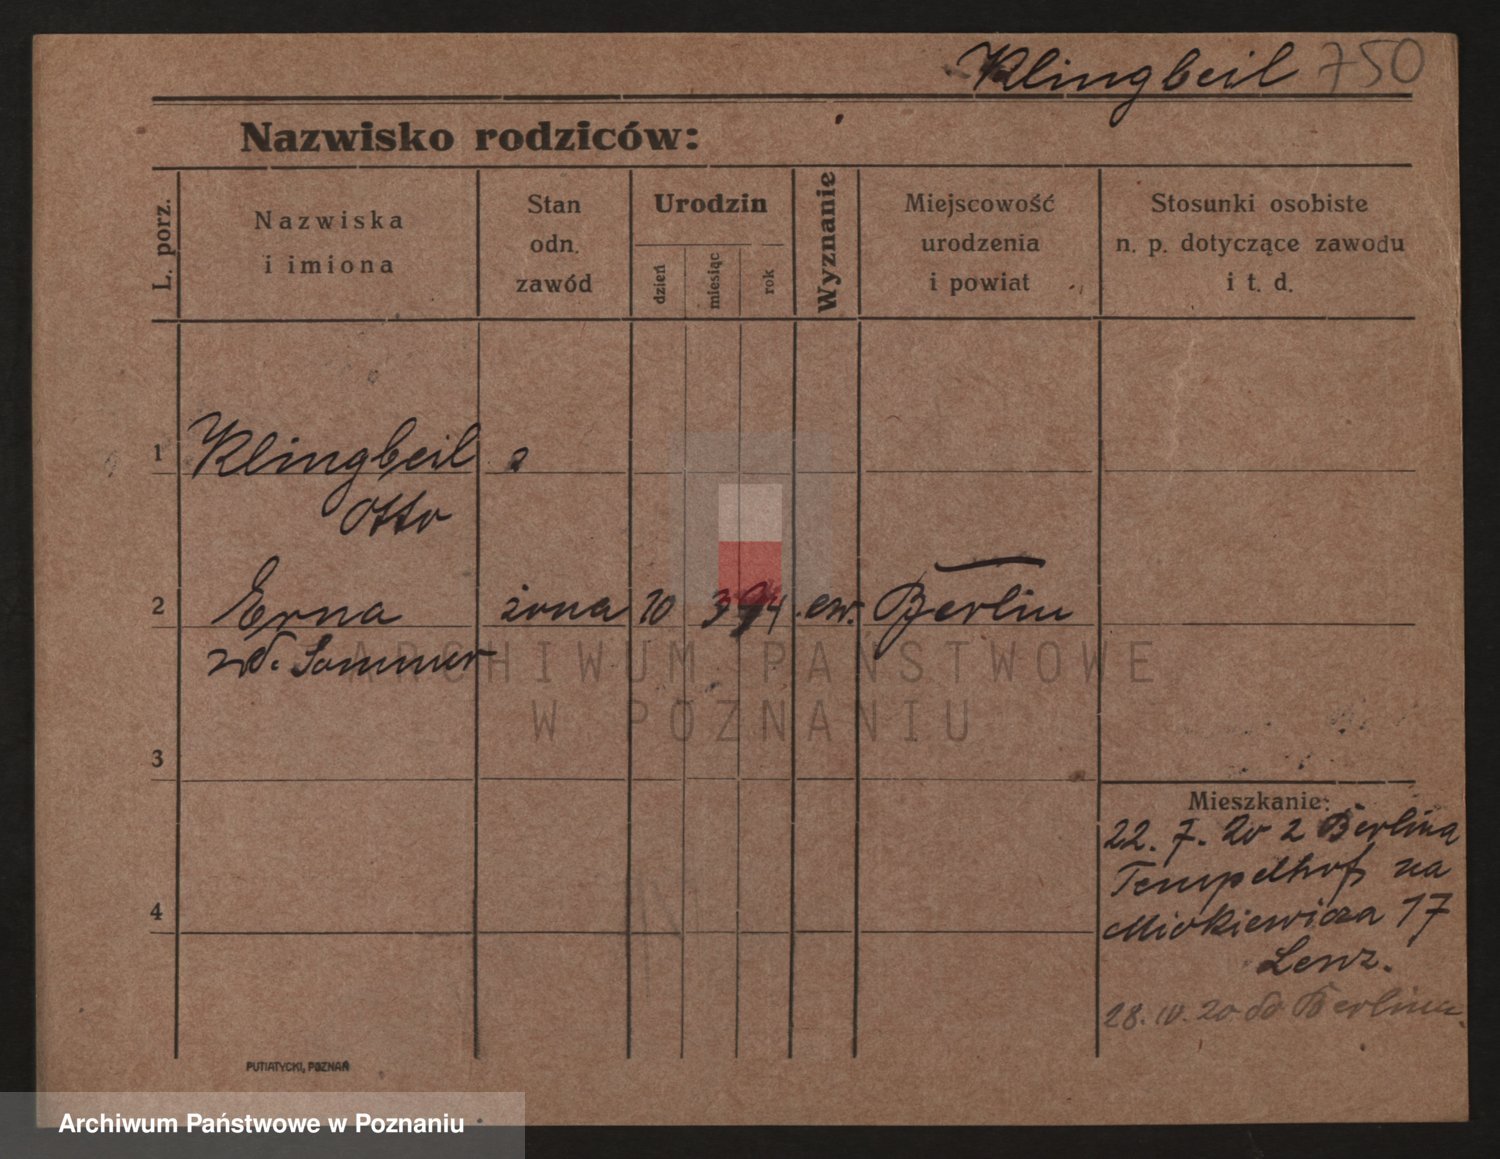 Klingbeil 750
Nazwisko rodziców:
L. porz.
Nazwiska
i imiona
Stan
odn.
zawód
Urodzin
dzień
miesiąc
rok
Wyznanie
Miejscowość
urodzenia
i powiat
Stosunki osobiste
n. p. dotyczące zawodu
i t. d.
1 Klingbeil
Otto
2 Erna żona 10 3 94 ew. Berlin
zd. Sommer
ARCHIWUM PAŃSTWOWE
W POZNANIU
3
Mieszkanie:
22. 7. 20 z Berlina
Tempelhof na
4
Mickiewicza 17
Lenz.
28. 10. 20 do Berlina.
PUTIATYCKI, POZNAŃ
Archiwum Państwowe w Poznaniu